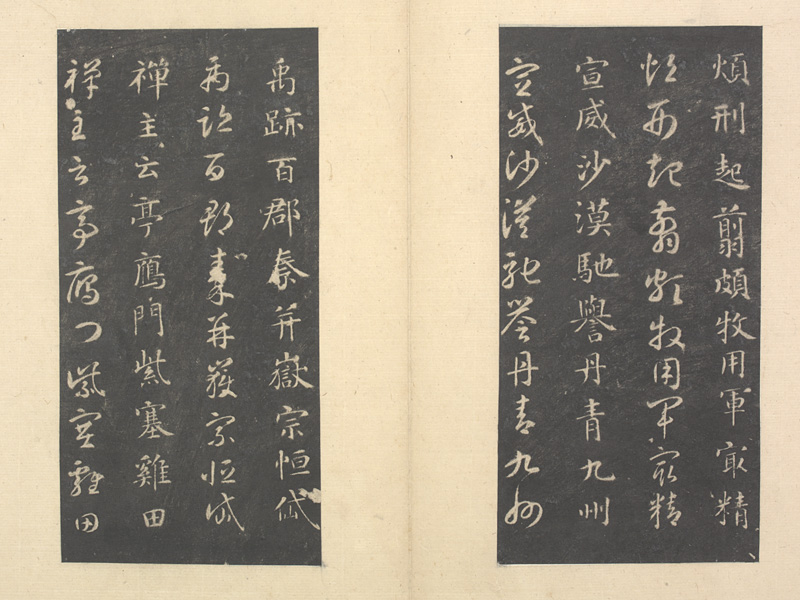 煩刑起翦頗牧用軍冣精
煩刑起翦頗牧用軍冣精
宣威沙漠馳譽丹青九州
宣威沙漠馳譽丹青九州
禹跡百郡秦并嶽宗恒岱
禹跡百郡秦并嶽宗恒岱
禪主云亭鴈門紫塞雞田
禪主云亭鴈門紫塞雞田